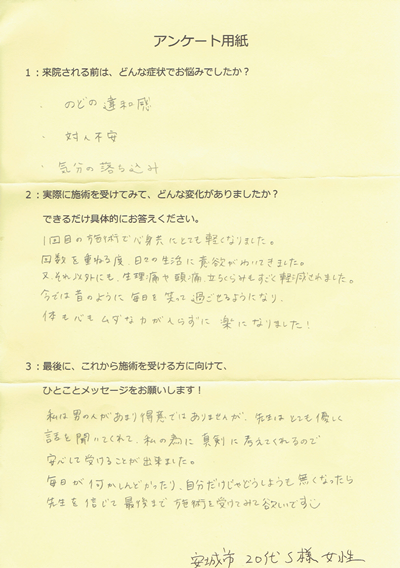 アンケート用紙
1：来院される前は、どんな症状でお悩みでしたか？
・ のどの違和感
・ 対人不安
・ 気分の落ち込み
2：実際に施術を受けてみて、どんな変化がありましたか？
できるだけ具体的にお答えください。
1回目の施術で心身共にとても軽くなりました。
回数を重ねる度、日々の生活に意欲がわいてきました。
又、それ以外にも、生理痛や頭痛、立ちくらみもすごく軽減されました。
今では昔のように毎日を笑って過ごせるようになり、
体も心もムダな力が入らずに楽になりました！
3：最後に、これから施術を受ける方に向けて、
ひとことメッセージをお願いします！
私は男の人があまり得意ではありませんが、先生はとても優しく
話を聞いてくれて、私の為に真剣に考えてくれるので
安心して受けることが出来ました。
毎日が何かしんどかったり、自分だけじゃどうしようも無くなったら
先生を信じて最後まで施術を受けてみて欲しいです
安城市 20代 S様 女性